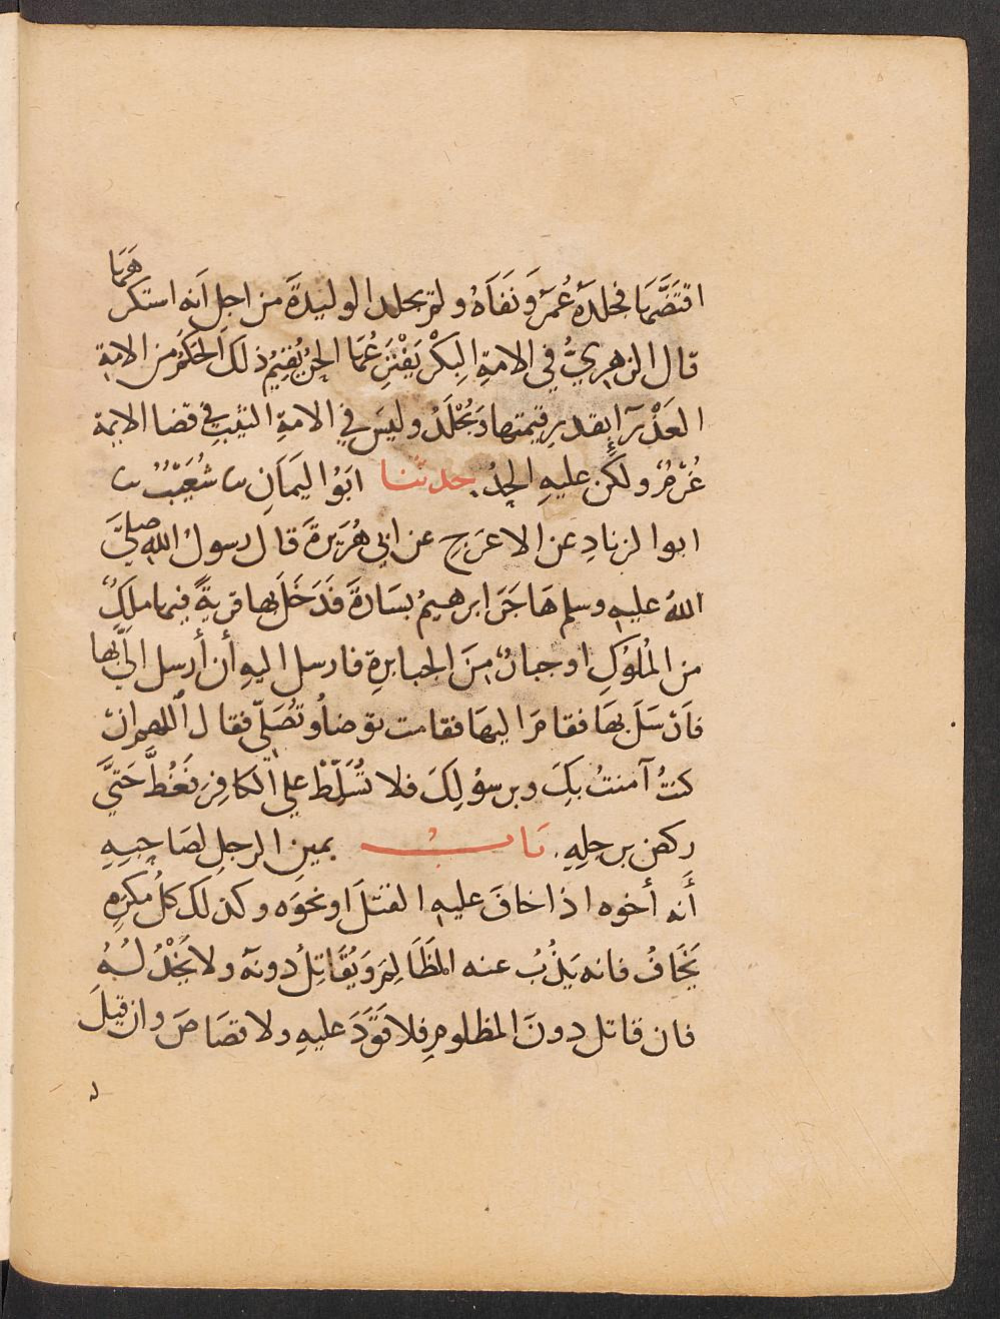 اقتَضَّهَا فجلدَهُ عُمَرُ وَنَفَاهُ ولم يجلد الوليدَةَ من اجل اَنه استكرهَهَا
قال الزهريُّ في الامةِ البِكْرِ يَفْتَرِعُهَا الحرُّ يُقيمُ ذلك الحَكَمُ من الامةِ
العَذْرَآءِ بقدر قيمتها وَيُجْلَدُ وليسَ في الامةِ الثيِّبِ في قضا الايمة
غُرْمٌ ولكن عليهِ الحدُّ. حدثنا ابَوُا اليَمَانِ نا شُعَيْبٌ نا
ابوا الزنادِ عن الاعرَجِ عن ابي هُرَيرةَ قال رسولُ الله صلى
اللهُ عليهِ وسلم هَاجَرَ ابرهيمُ بسَارَةَ فَدَخَلَ بها قريةً فيها ملكٌ
من المُلُوكِ او جبارٌ منَ الجبابرةِ فارسل اليهِ أن أرسل اليَّ بها
فاَرْسَلَ بهَا فقامَ اليهَا فقامت توضاُ وتُصَلِّي فقالت اللهم ان
كنتُ آمنتُ بكَ وبرسوُلِكَ فلا تُسَلِّطْ علي الكافِرَ فَغُطَّ حَتيَّ
ركض برجلِهِ. بَابُ يمينِ الرجلِ لصَاحِبِهِ
أَنه أخوه اذا خافَ عليهِ القتلَ او نحوَه وكذلك كلُّ مكرَهٍ
يَخَافُ فانه يَذُبُّ عنه المظَالِمَ وَيُقَاتِلُ دونَهُ ولا يَخْذُلُهُ
فان قاتل دونَ المظلومِ فلا قَوَدَ عليهِ ولا قصَاصَ وان قيلَ